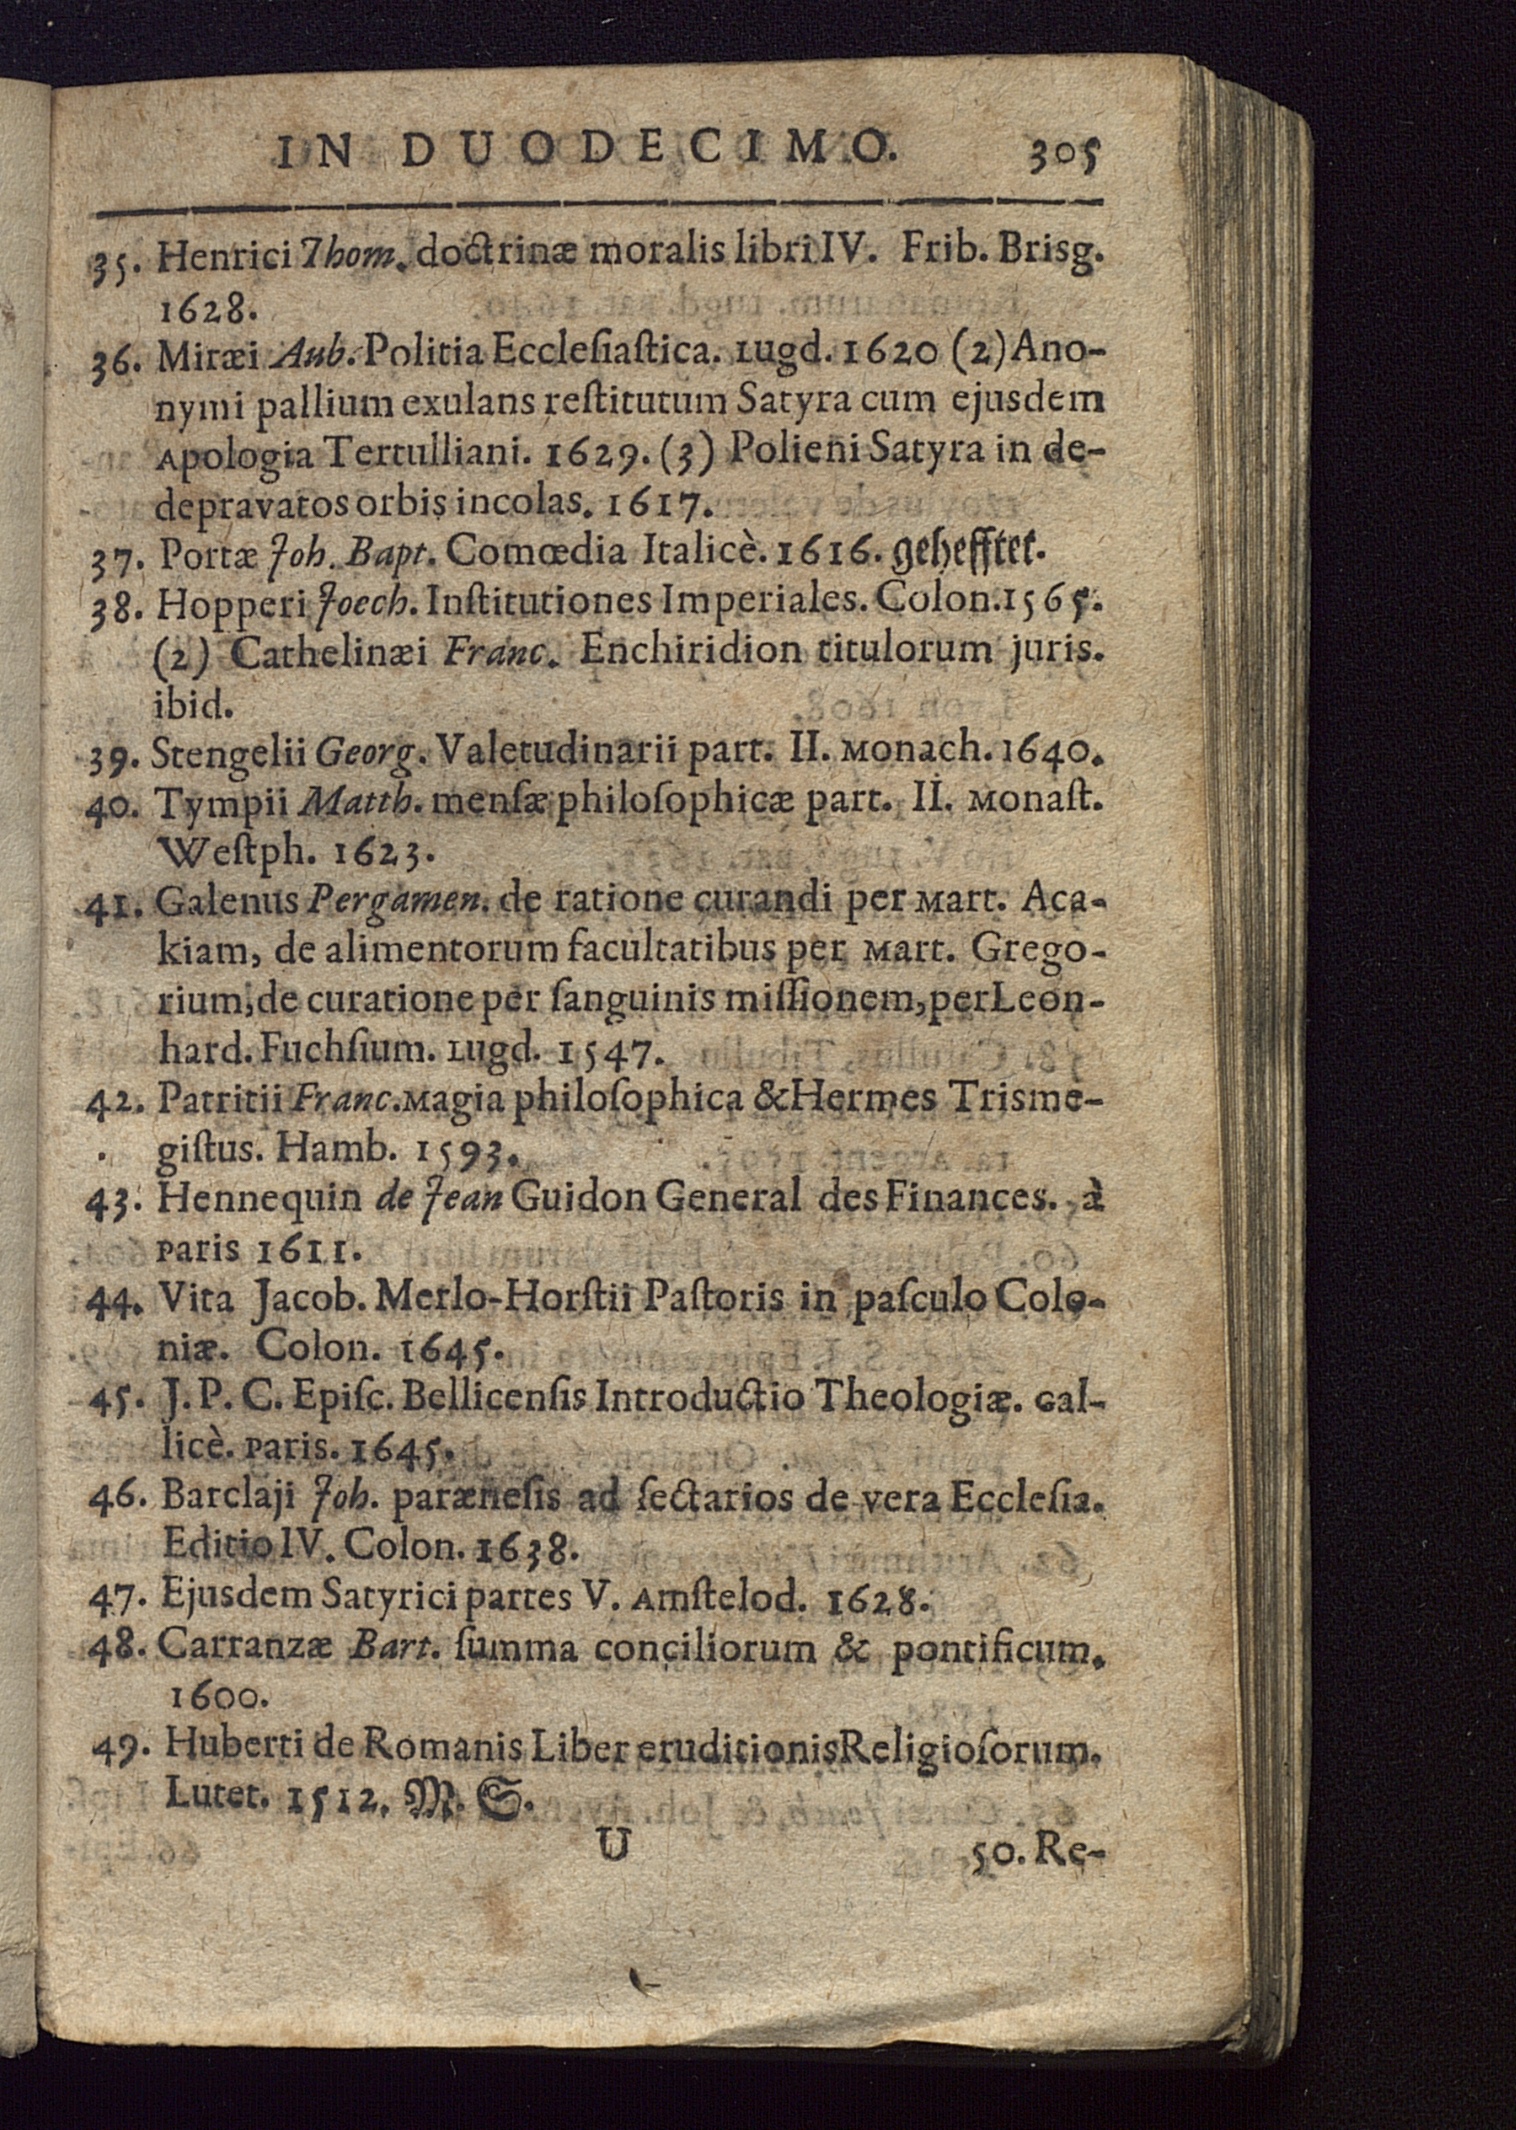 IN DUODECIMO. 305
35. Henrici Thom. doctrinæ moralis libri IV. Frib. Brisg.
1628.
36. Miræi Aub. Politia Eccleſiaſtica. Lugd. 1620 (2) Ano-
nymi pallium exulans reſtitutum Satyra cum ejusdem
Apologia Tertulliani. 1629. (3) Polieni Satyra in de-
depravatos orbis incolas. 1617.
37. Portæ Joh. Bapt. Comœdia Italicè. 1616. gehefftet.
38. Hopperi Joech. Inſtitutiones Imperiales. Colon. 1565.
(2) Cathelinæi Franc. Enchiridion titulorum juris.
ibid.
39. Stengelii Georg. Valetudinarii part. II. Monach. 1640.
40. Tympii Matth. menſæ philoſophicæ part. II. Monaſt.
Weſtph. 1623.
41. Galenus Pergamen. de ratione curandi per Mart. Aca-
kiam, de alimentorum facultatibus per Mart. Grego-
rium, de curatione per ſanguinis miſſionem, per Leon-
hard. Fuchſium. Lugd. 1547.
42. Patritii Franc. Magia philoſophica & Hermes Trisme-
giſtus. Hamb. 1593.
43. Hennequin de Jean Guidon General des Finances. à
Paris 1611.
44. Vita Jacob. Merlo-Horſtii Paſtoris in paſculo Colo-
niæ. Colon. 1645.
45. J. P. C. Epiſc. Bellicenſis Introductio Theologiæ. Gal-
licè. Paris. 1645.
46. Barclaji Joh. paræneſis ad ſectarios de vera Eccleſia.
Editio IV. Colon. 1638.
47. Ejusdem Satyrici partes V. Amſtelod. 1628.
48. Carranzæ Bart. ſumma conciliorum & pontificum.
1600.
49. Huberti de Romanis Liber eruditionis Religioſorum.
Lutet. 1512. M. S.
U 50. Re-